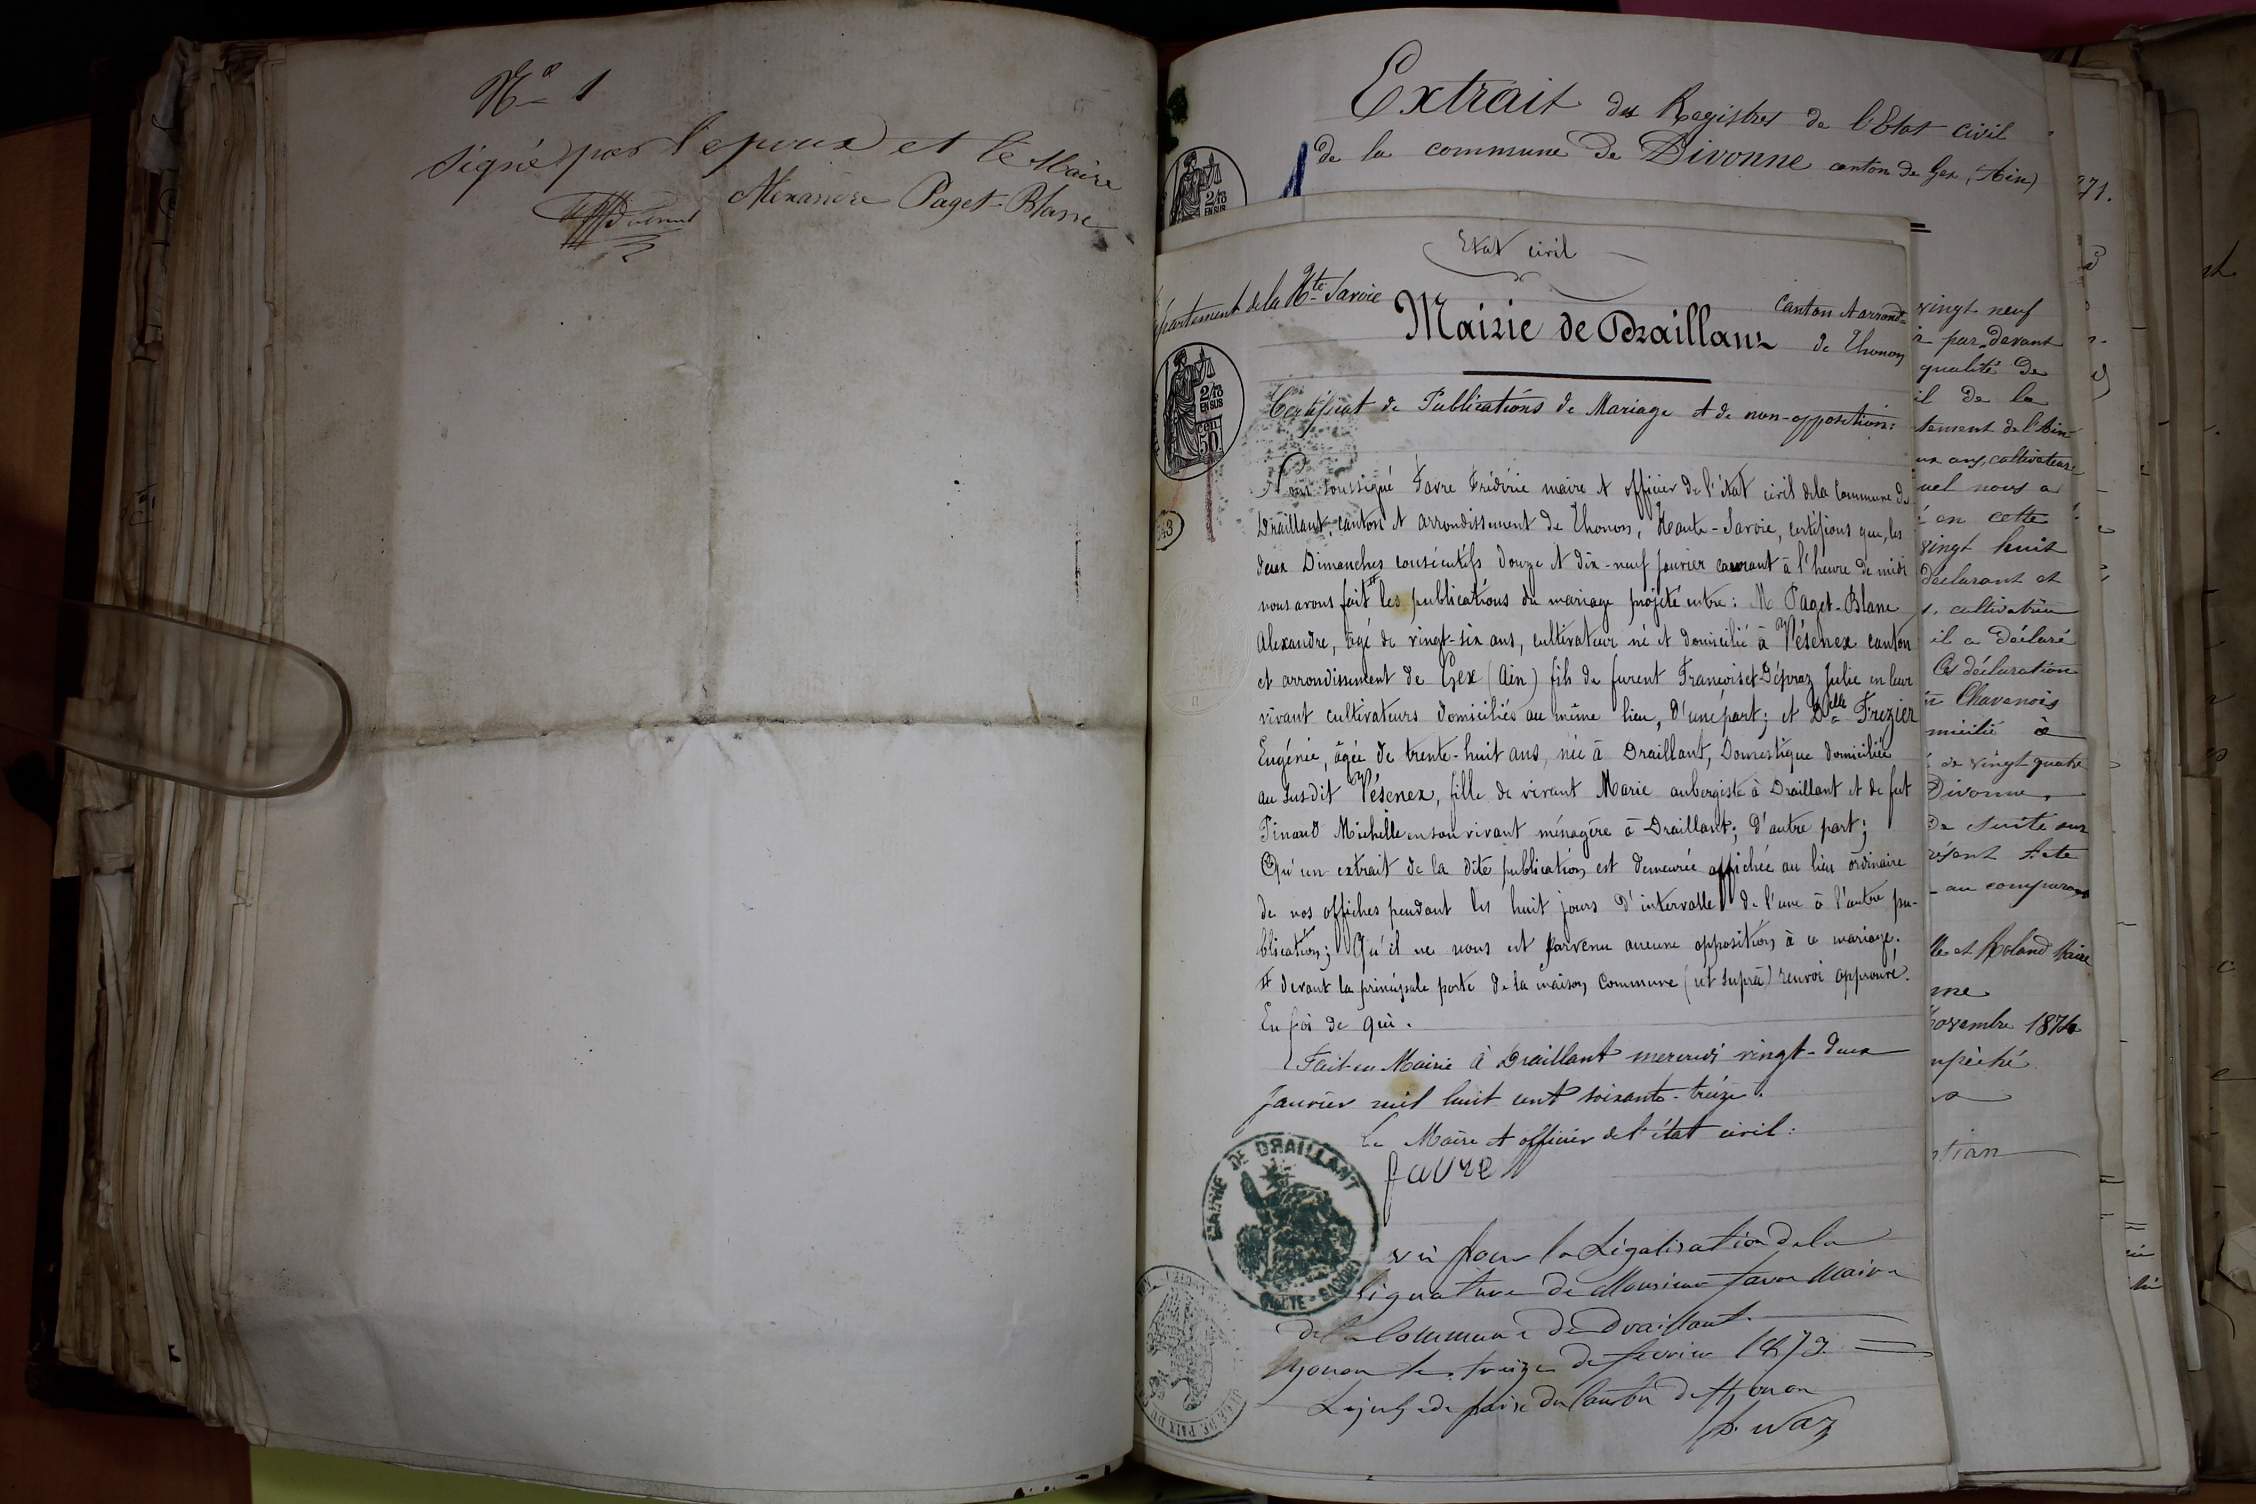 N° 1
Signé par l'epoux et le Maire
Alexandre Paget-Blanc
Extrait des Registres de l'Etat civil
de la commune de Divonne canton de Gex, (Ain)
1
2/10
EN SUS
871.
Etat civil
Département de la Hte Savoie
Canton & arrondt
Mairie de Draillant
de Thonon
2/10
EN SUS
50
Certificat de Publications de Mariage et de non-opposition:
Nous soussigné Favre Frédéric maire et officier de l'état civil de la Commune de
Draillant, canton et arrondissement de Thonon, Haute-Savoie, certifions que, les
deux Dimanches consécutifs douze et dix-neuf janvier courant à l'heure de midi
nous avons fait # les publications du mariage projeté entre: M Paget-Blanc
Alexandre, âgé de vingt-six ans, cultivateur né et domicilié à Vésenex canton
et arrondissement de Gex (Ain) fils de furent François et Dépraz Julie en leur
vivant cultivateurs domiciliés au même lieu, d'une part; et Delle Frezier
Eugénie, âgée de trente-huit ans, née à Draillant, Domestique domiciliée
au susdit Vésenex, fille de vivant Marie aubergiste à Draillant et de fut
Pinaud Michelle en son vivant ménagère à Draillant; d'autre part;
Qu'un extrait de la dite publication est demeurée affichée au lieu ordinaire
de nos affiches pendant les huit jours d'intervalle de l'une à l'autre pu-
blication; Qu'il ne nous est parvenu aucune opposition à ce mariage.
# devant la principale porte de la maison Commune (ut supra) renvoi approuvé.
En foi de qui.
Fait en Mairie à Draillant mercredi vingt-deux
janvier mil huit cent soixante-treize.
Le Maire et officier de l'état civil:
favre
MAIRIE DE DRAILLANT
HAUTE-SAVOIE
Vu pour la Légalisation de la
signature de Monsieur favre Maire
de la Commune de Draillant.
Thonon le treize de fevrier 1873.
Le juge de paix du Canton de Thonon
vingt neuf
par devant
qualité de
il de la
tement de l'Ain
ux ans, cultivateur
uel nous a
en cette
vingt huit
déclarant et
cultivatrice
il a déclaré
Ces déclaration
Chavanois
micilié à
de vingt quatre
Divonne,
De suite sur
résent Acte
au comparant
lle et Roland Maire
nne
Novembre 1874
mpêché
tian